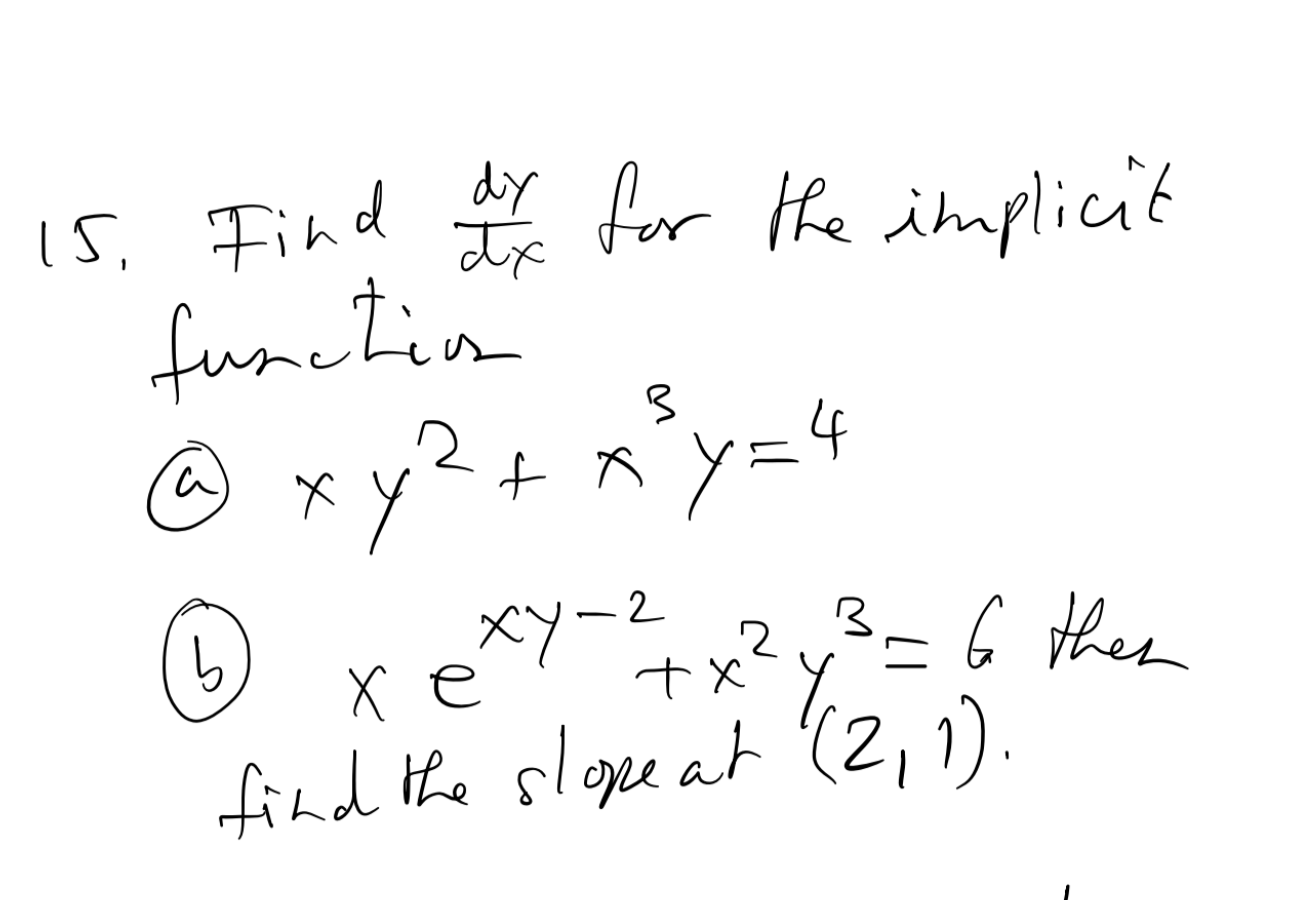 15. Find dy/dx for the implicit
function
(a) xy² + x³y = 4
(b) x e^(xy-2) + x²y³ = 6 then
find the slope at (2, 1).